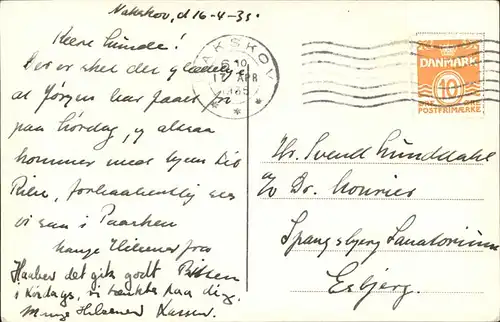 Nakskov, d 16-4-35.
Kære Svende!
Der er sket det glædelige
at Jørgen har faaet fri
paa Lørdag, og altsaa
kommer med hjem til
Ribe, forhaabentlig ses
vi saa i Paasken
Mange Hilsener fra
Haaber det gik godt
i Lørdags, vi tænkte paa dig.
Mange Hilsener
NAKSKOV
17 APR
1935
DANMARK
10
ØRE ØRE
POSTFRIMÆRKE
Hr. Svend Lunddahl
Dr.
Spangsbjerg Sanatorium
Esbjerg.